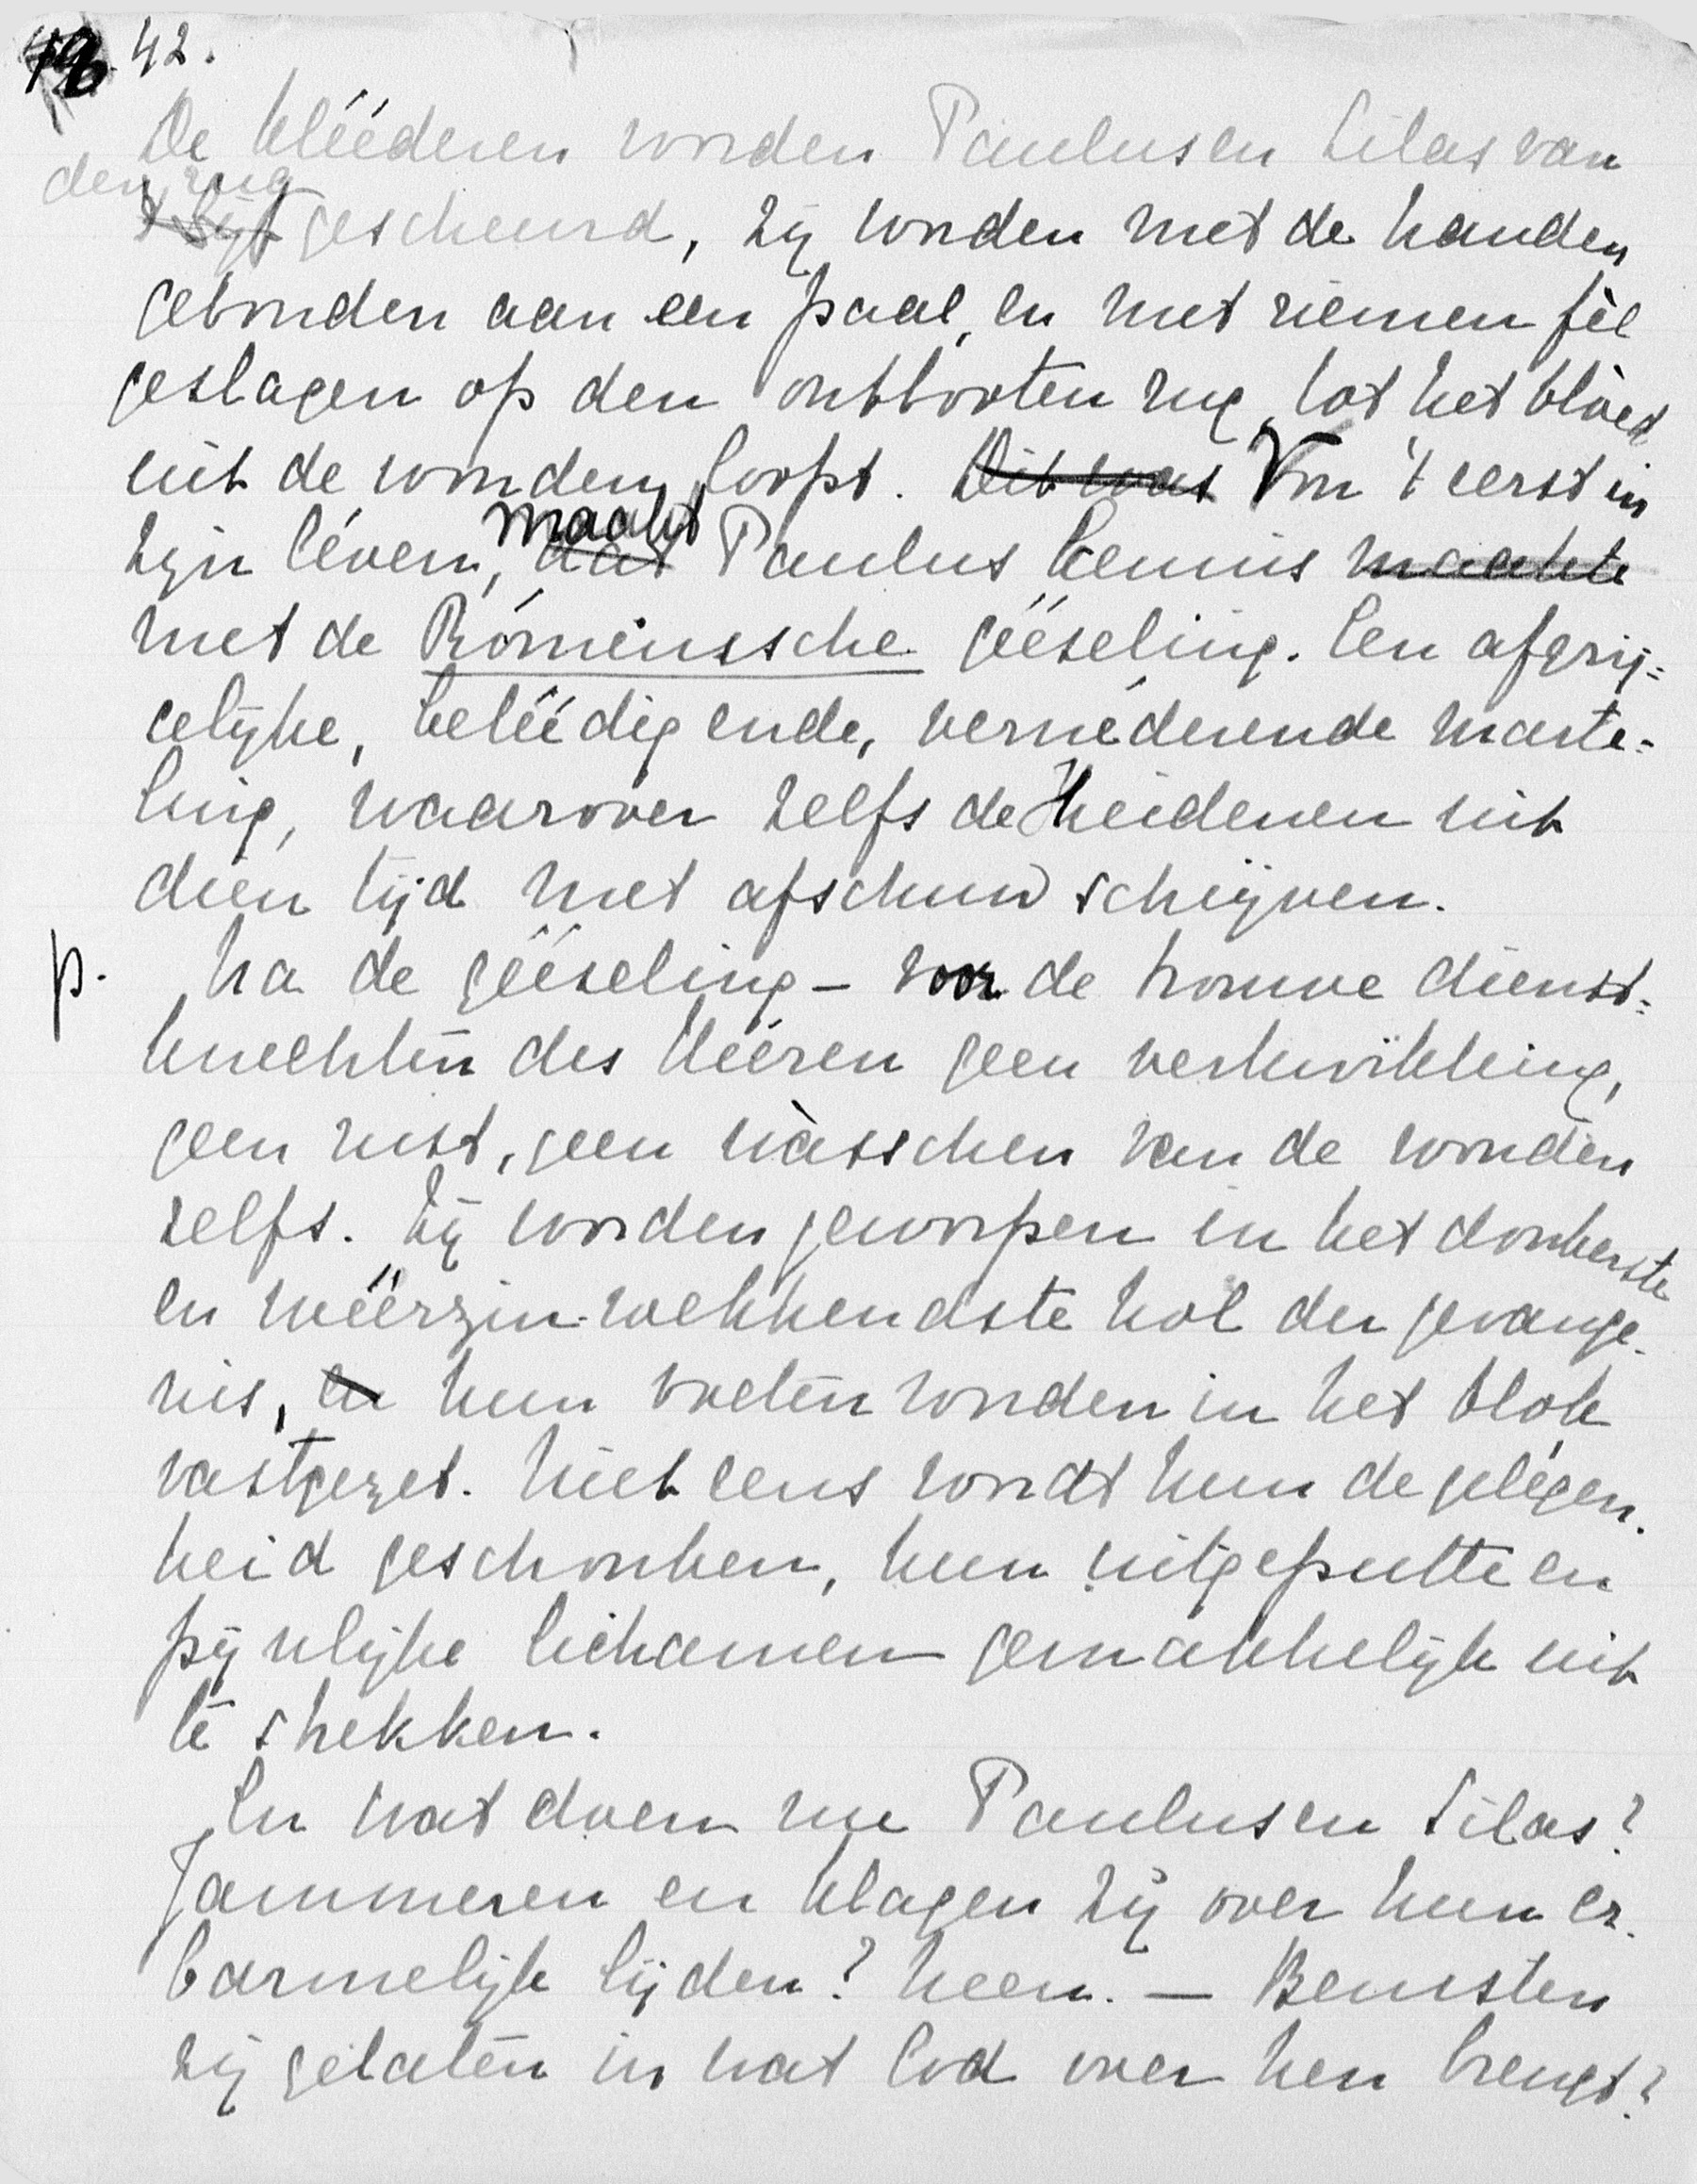 42.
De kléederen worden Paulus en Silas van
den rug
't lijf gescheurd, zij worden met de handen
gebonden aan een paal, en met riemen fèl
geslagen op den ontblooten rug, tot het blòed
uit de wonden loopt. Dit was Vóor 't eerst in
zijn léven, dat maakt Paulus kennis maakte
met de Rómeinssche géeseling. Een afgrij=
celijke, beléedigende, vernéderende marte=
ling, waarover zelfs de Heidenen uit
dien tijd met afschuw schrijven.
p. Na de géeseling - voor de trouwe dienst=
knechten des Héeren geen verkwikking,
geen rust, geen wàsschen van de wonden
zelfs. Zij worden geworpen in het donkerste
en wéerzin-wekkendste hol der gevange-
nis, en hun voeten worden in het blok
vastgezet. Niet eens wordt hun de gelégen-
heid geschonken, hun uitgeputte en
pijnlijke lichamen gemakkelijk uit
te strekken.
En wat doen nu Paulus en Silas?
Jammeren en klagen zij over hun er-
barmelijk lijden? Neen. — Berusten
zij gelaten in wat God over hen brengt?